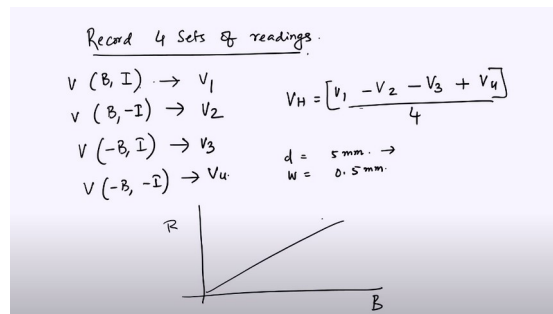 Record 4 Sets of readings.
V (B, I) → V1
V (B, -I) → V2
V (-B, I) → V3
V (-B, -I) → V4.
VH = [V1 - V2 - V3 + V4] / 4
d = 5 mm. →
W = 0.5 mm.
R
B